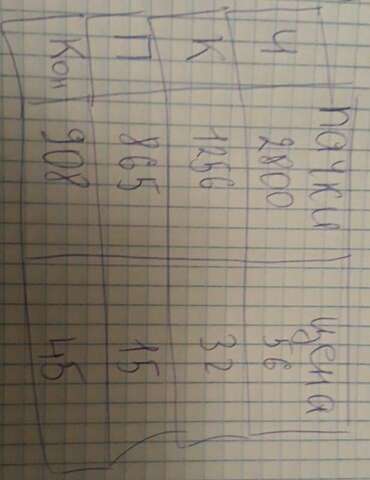 пачки цена
Ч 2800 56
К 1256 32
П 865 15
Кон 908 45